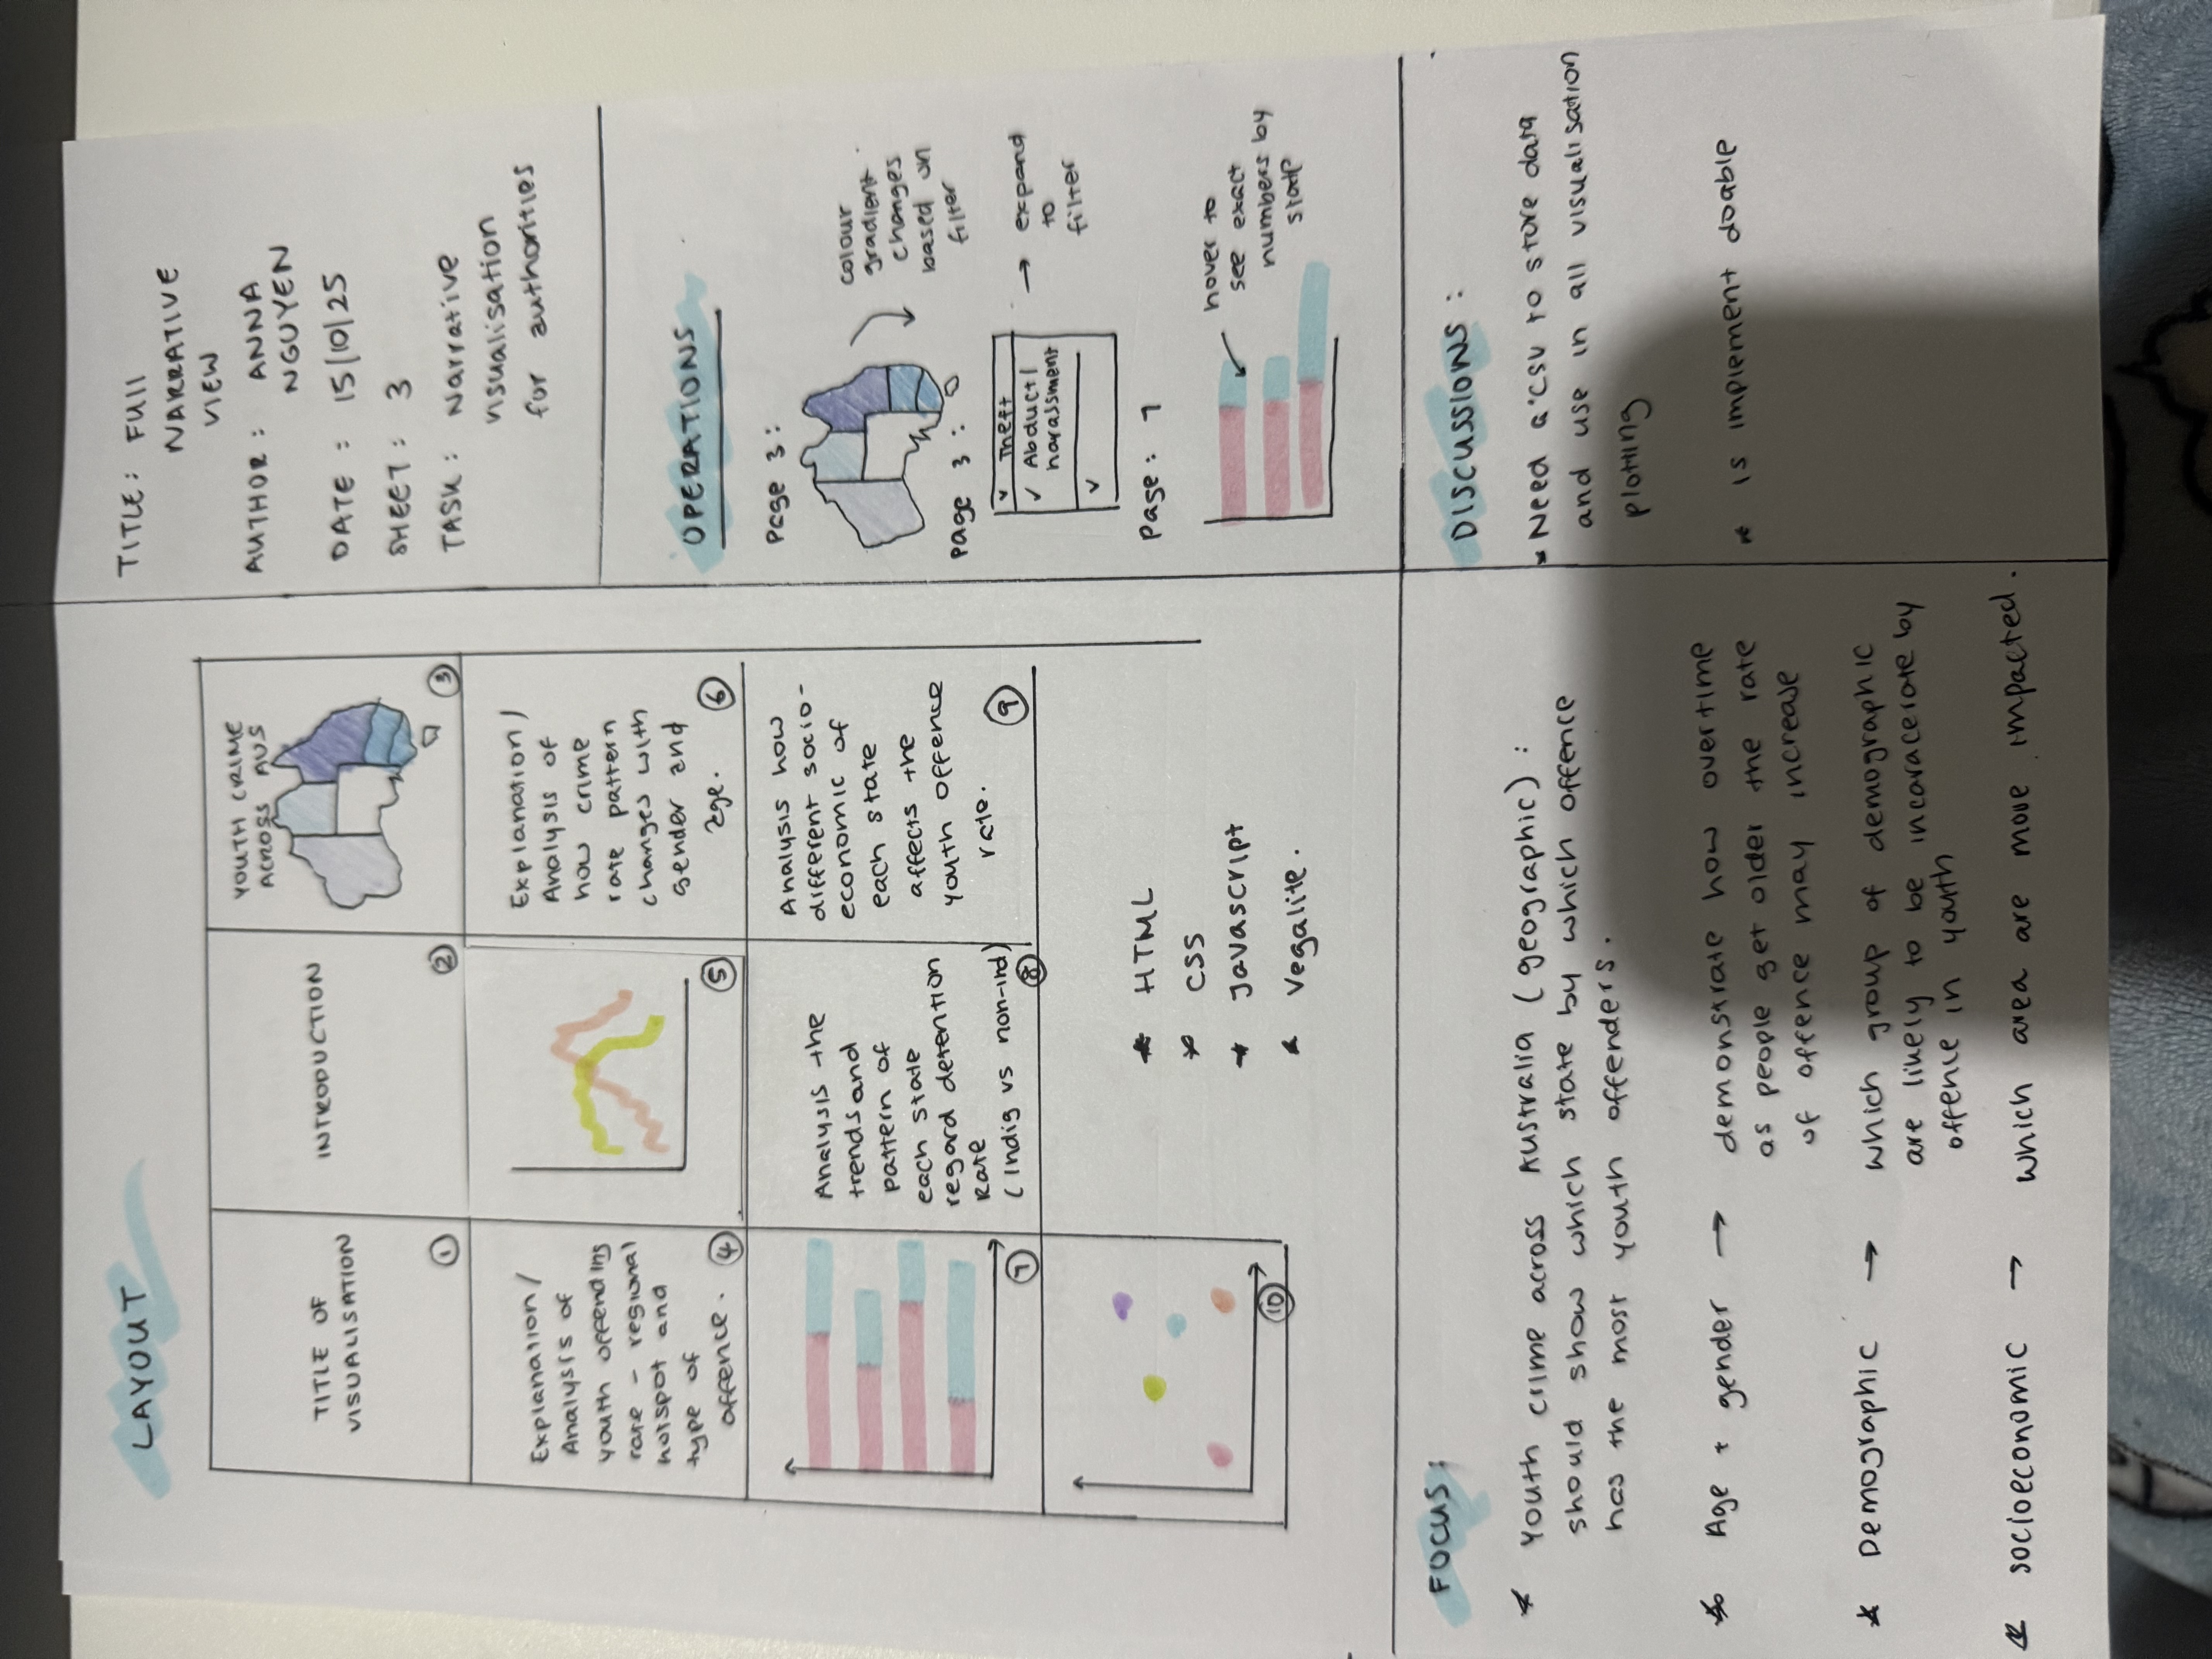 LAYOUT
TITLE OF
VISUALISATION
①
INTRODUCTION
②
YOUTH CRIME
ACROSS AUS
③
Explanation/
Analysis of
youth offending
rate - regional
hotspot and
type of
offence.
④
⑤
Explanation/
Analysis of
how crime
rate pattern
changes with
gender and
age.
⑥
⑦
Analysis the
trends and
pattern of
each state
regard detention
Rate
(Indig vs non-ind)
⑧
Analysis how
different socio-
economic of
each state
affects the
youth offence
rate.
⑨
⑩
* HTML
* CSS
* Javascript
* Vegalite.
TITLE: FUll
NARRATIVE
VIEW
AUTHOR: ANNA
NGUYEN
DATE: 15/10/25
SHEET: 3
TASK: Narrative
visualisation
for authorities
OPERATIONS
Page 3:
colour
gradient
changes
based on
filter
Page 3:
✓ Theft
✓ Abduct/
harassment
✓
→ expand
to
filter
Page: 7
hover to
see exact
numbers by
state
FOCUS:
* Youth crime across Australia (geographic):
should show which state by which offence
has the most youth offenders.
* Age + gender → demonstrate how overtime
as people get older the rate
of offence may increase
* Demographic → which group of demographic
are likely to be incaracerate by
offence in youth
* socioeconomic → which area are more impacted.
DISCUSSIONS:
* Need a CSV to store data
and use in all visualisation
plotting
* is implement doable